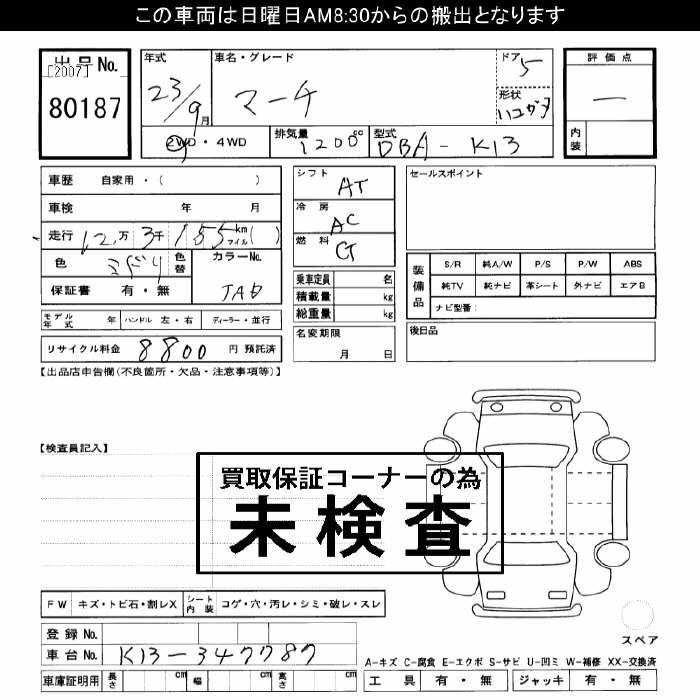 この車両は日曜日AM8:30からの搬出となります
出品No.
[2007]
80187
年式
23/9月
車名・グレード
マーチ
ドア
5
形状
ハコガタ
②WD・4WD
排気量
1200cc
型式
DBA-K13
評価点
—
内装
車歴 自家用・( )
車検 年 月
走行 12万3千155km マイル( )
色 ミドリ 色替
カラーNo.
JAD
保証書 有・無
モデル年式 年 ハンドル 左・右 ディーラー・並行
リサイクル料金 8800 円 預託済
シフト
AT
冷房
AC
燃料
G
乗車定員 名
積載量 kg
総重量 kg
名変期限
月 日
セールスポイント
装備品
S/R 純A/W P/S P/W ABS
純TV 純ナビ 革シート 外ナビ エアB
ナビ型番:
後日品
【出品店申告欄(不良箇所・欠品・注意事項等)】
【検査員記入】
買取保証コーナーの為
未検査
FW キズ・トビ石・割レX シート内装 コゲ・穴・汚レ・シミ・破レ・スレ
登録No.
車台No. K13-347787
車庫証明用 長さ cm 幅 cm 高さ cm
スペア
A-キズ C-腐食 E-エクボ S-サビ U-凹ミ W-補修 XX-交換済
工具 有・無 ジャッキ 有・無